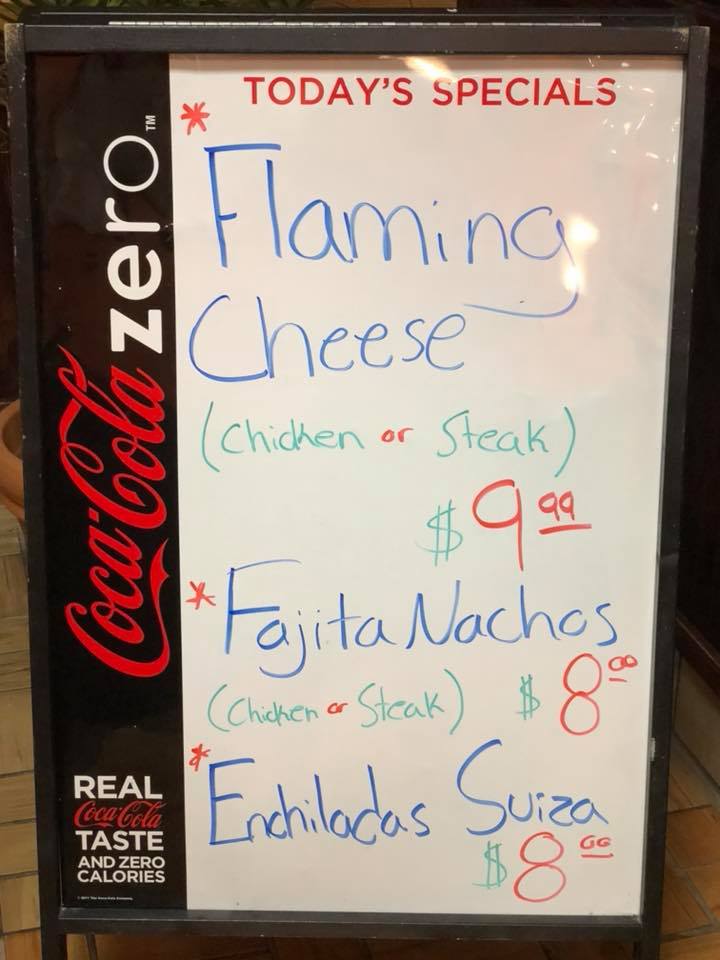 TODAY'S SPECIALS
* Flaming
Cheese
(Chicken or Steak)
$9.99
* Fajita Nachos
(Chicken or Steak) $8.00
* Enchiladas Suiza
$8.00
Coca-Cola zero™
REAL
Coca-Cola
TASTE
AND ZERO
CALORIES